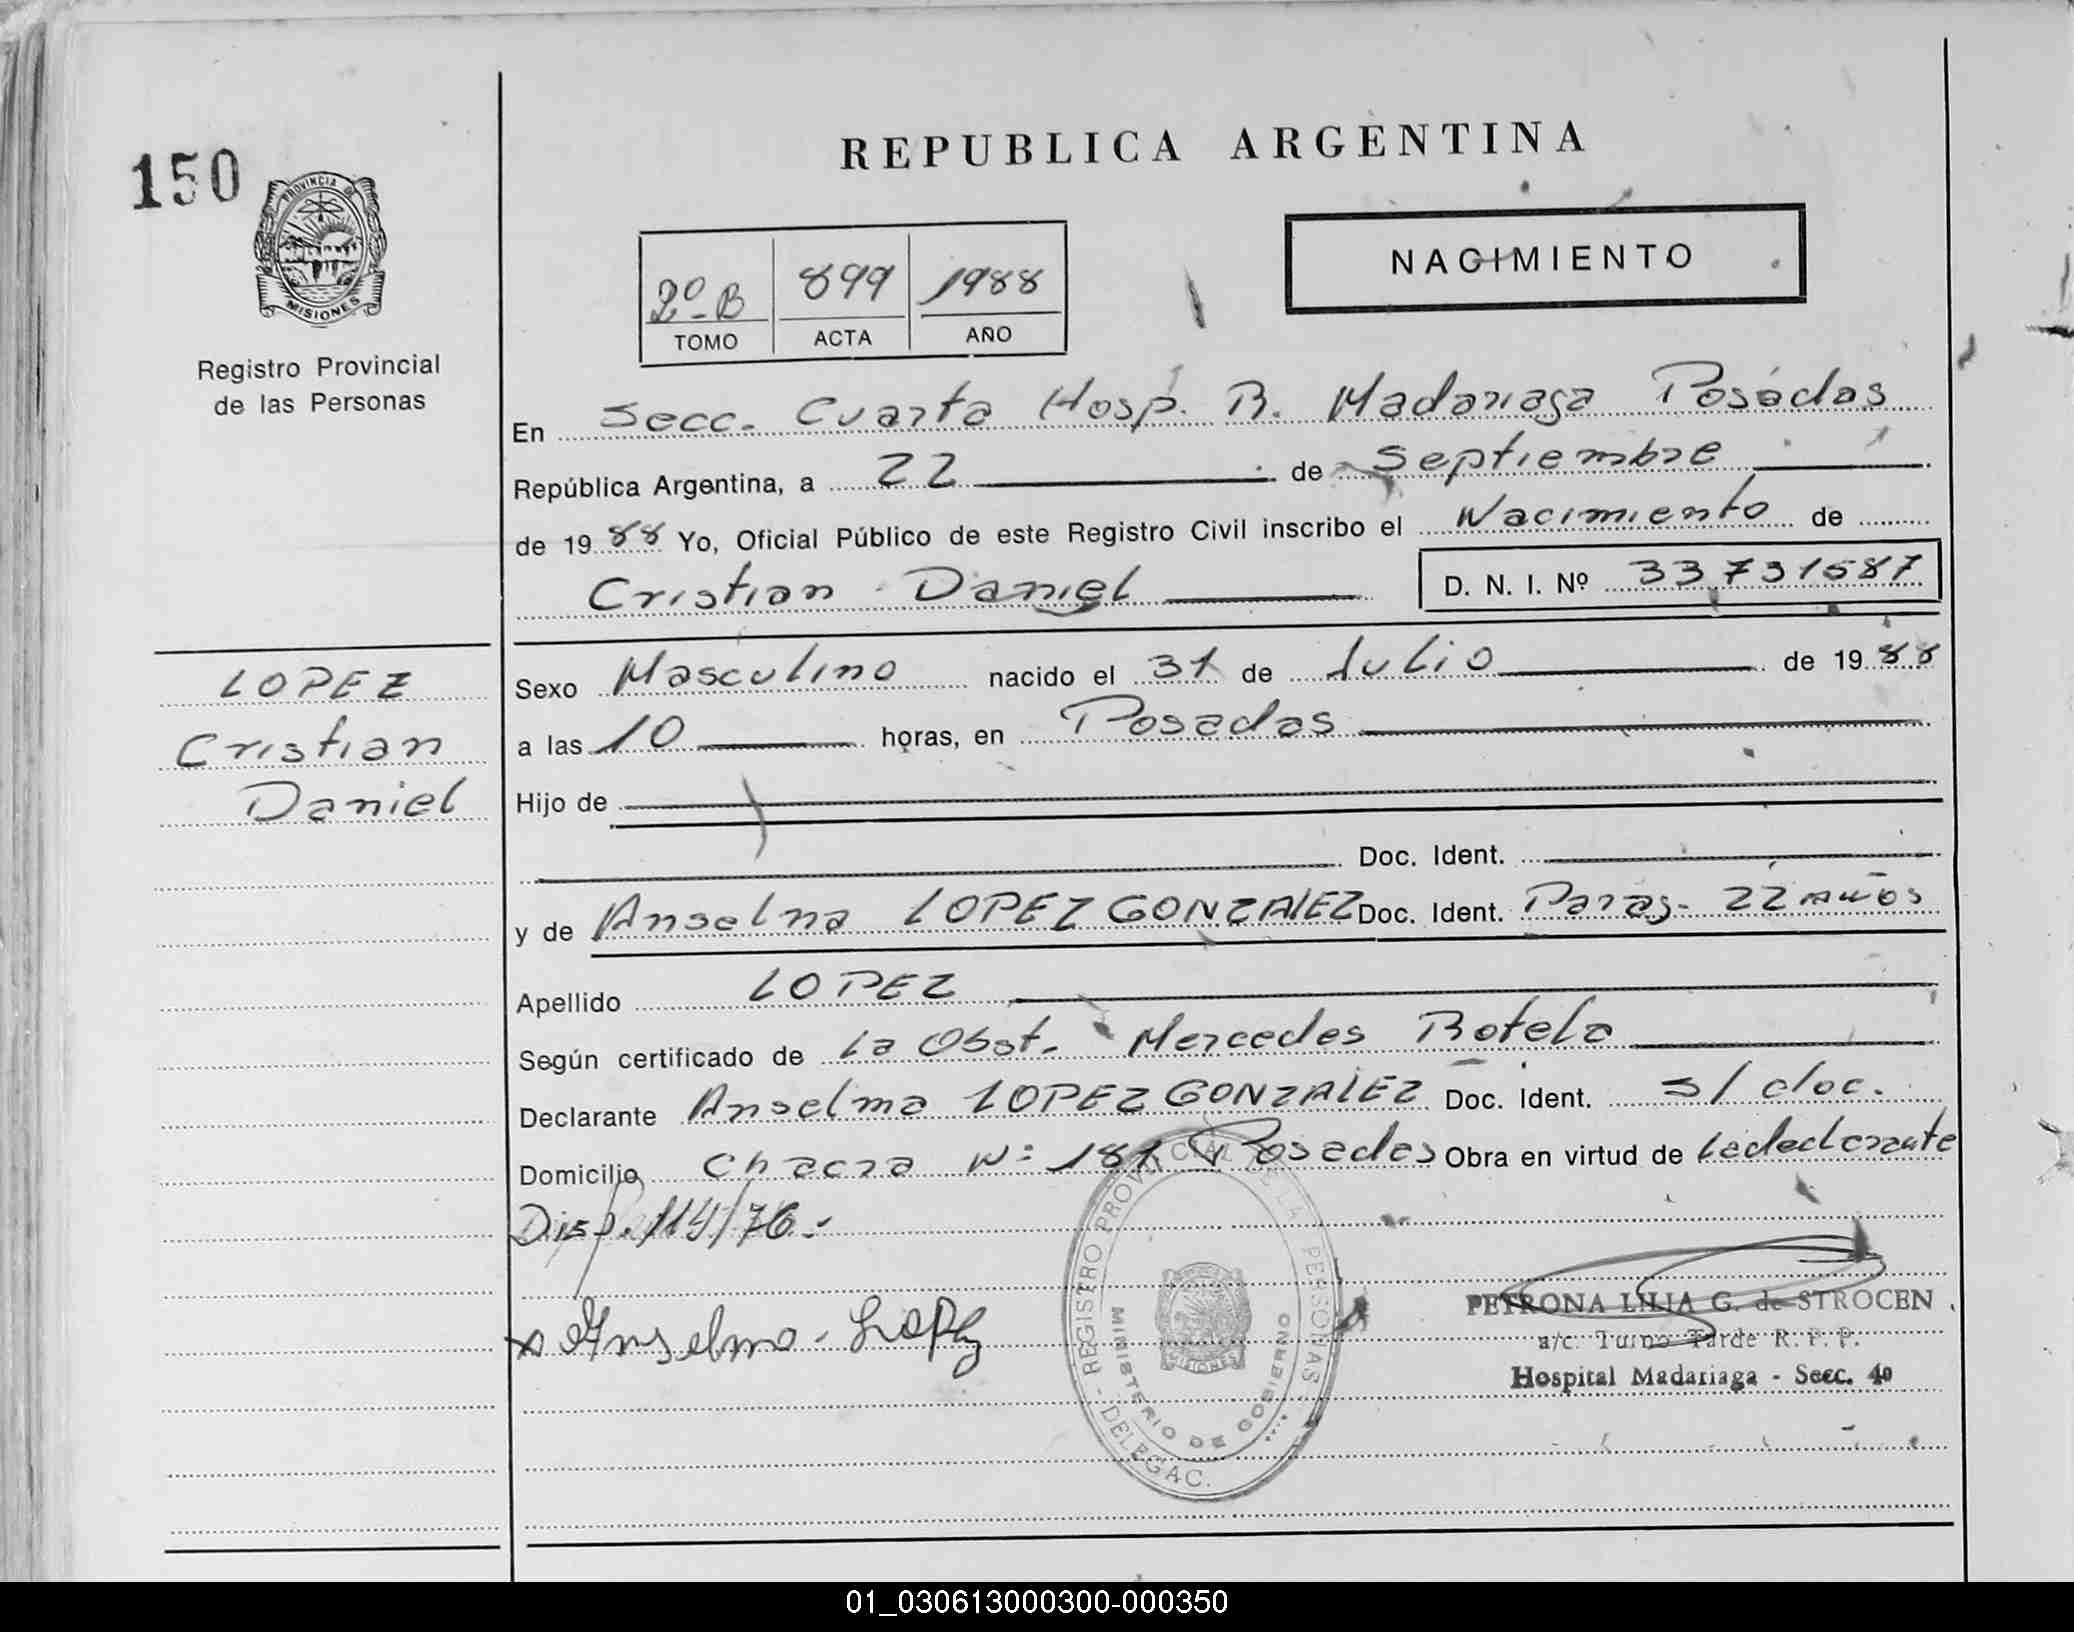 150
REPUBLICA ARGENTINA
PROVINCIA DE
MISIONES
NACIMIENTO
2º B 899 1988
TOMO ACTA AÑO
Registro Provincial
de las Personas
En Secc. Cuarta Hosp. R. Madariaga Posadas
República Argentina, a 22 de Septiembre
de 1988 Yo, Oficial Público de este Registro Civil inscribo el Nacimiento de
Cristian Daniel D. N. I. Nº 33.731587
LOPEZ
Cristian
Daniel
Sexo Masculino nacido el 31 de Julio de 1988
a las 10 horas, en Posadas
Hijo de
Doc. Ident.
y de Anselma LOPEZ GONZALEZ Doc. Ident. Parag. 22 años
Apellido LOPEZ
Según certificado de La Obst. Mercedes Botelo
Declarante Anselma LOPEZ GONZALEZ Doc. Ident. s/ doc.
Domicilio Chacra Nº 181 Posadas Obra en virtud de la declarante
Disp. 114/76.-
x Anselma - Lopez
REGISTRO PROVINCIAL DE LAS PERSONAS
MINISTERIO DE GOBIERNO
MISIONES
DELEGAC.
PETRONA LILIA G. de STROCEN
a/c. Turno Tarde R. P. P.
Hospital Madariaga - Secc. 4º
01_030613000300-000350